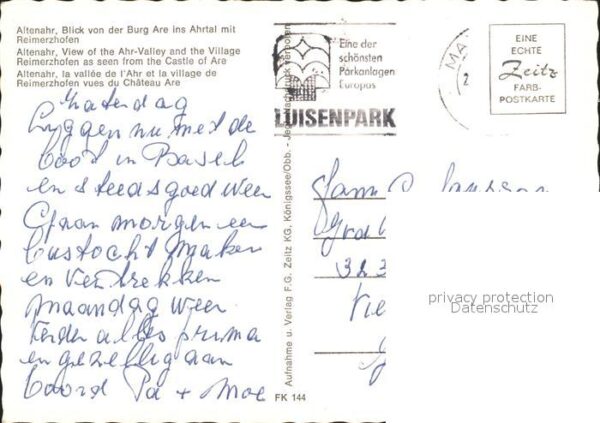 Altenahr, Blick von der Burg Are ins Ahrtal mit
Reimerzhofen
Altenahr, View of the Ahr-Valley and the Village
Reimerzhofen as seen from the Castle of Are
Altenahr, la vallée de l'Ahr et la village de
Reimerzhofen vues du Château Are
Zaterdag
Lyggen nu met de
boot in Basel
en steeds goed weer
Gaan morgen een
bustocht maken
en vertrekken
maandag weer
verder alles prima
en gezellig aan
boord Pa + Moe
Aufnahme u. Verlag F.G. Zeitz KG, Königssee/Obb. - Jeder Nachdruck verboten
FK 144
Eine der
schönsten
Parkanlagen
Europas
LUISENPARK
MA
2
EINE
ECHTE
Zeitz
FARB-
POSTKARTE
Fam
323
privacy protection
Datenschutz